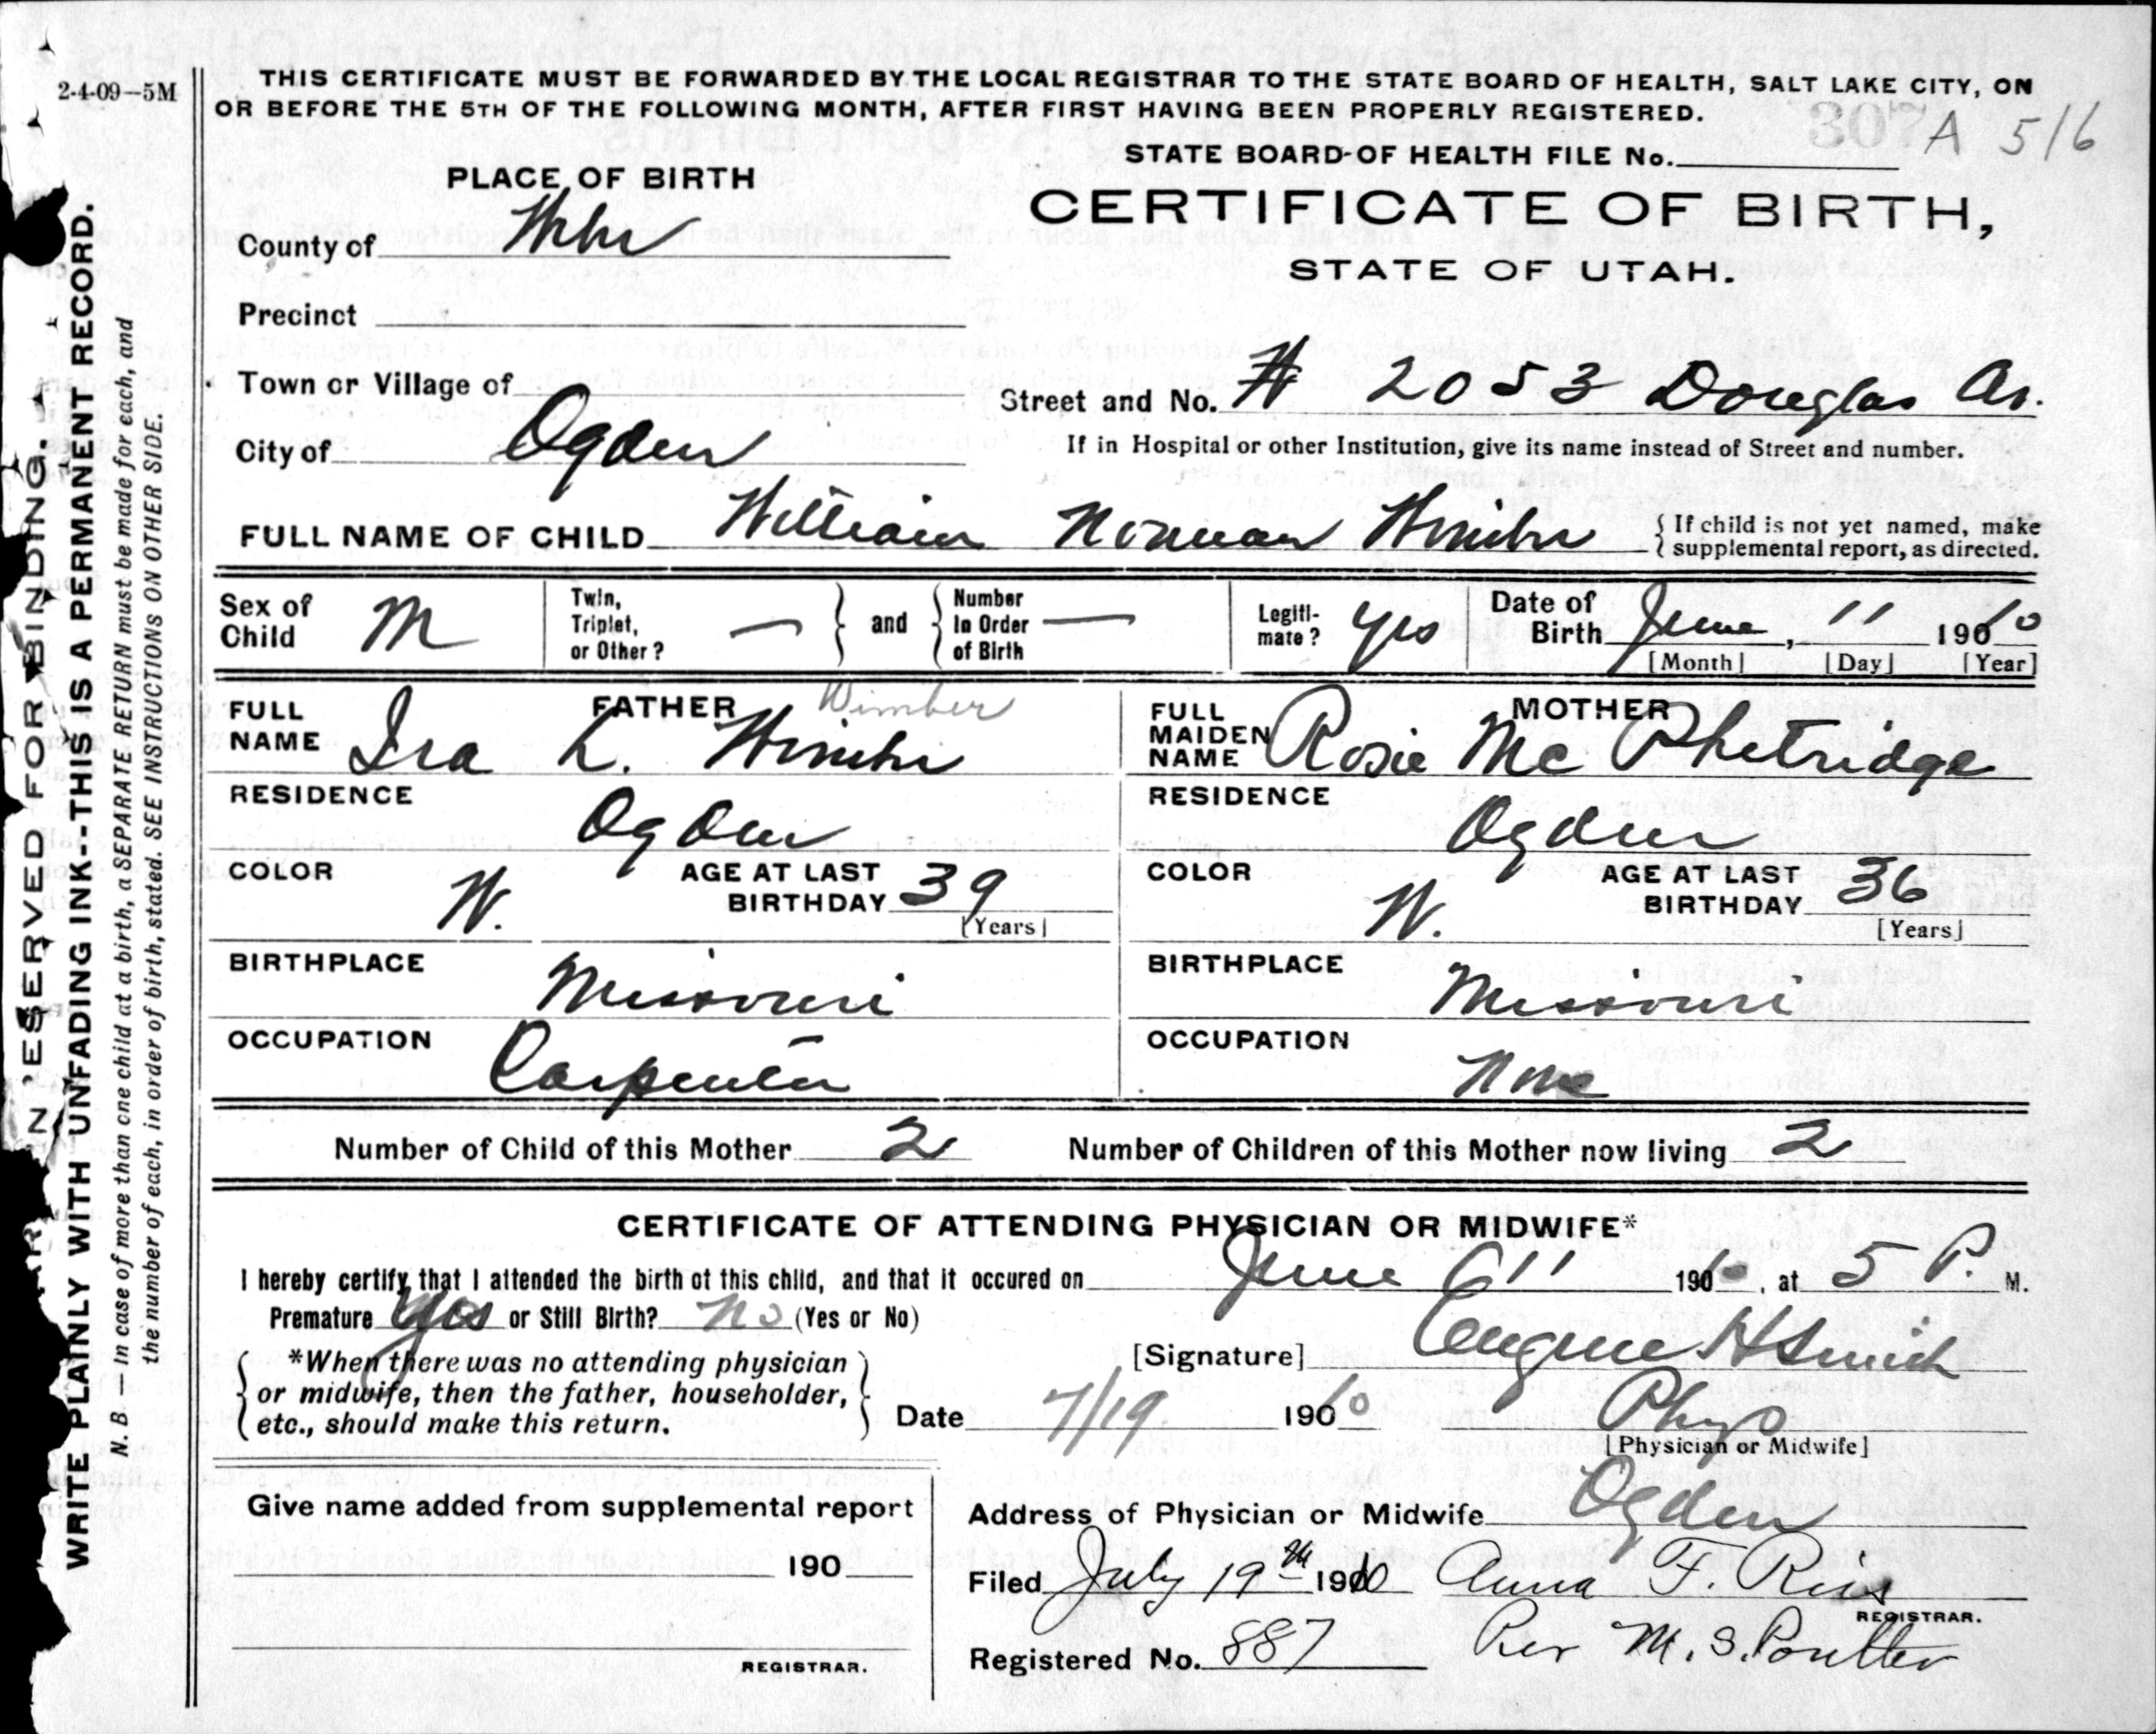 2-4-09—5M
THIS CERTIFICATE MUST BE FORWARDED BY THE LOCAL REGISTRAR TO THE STATE BOARD OF HEALTH, SALT LAKE CITY, ON
OR BEFORE THE 5TH OF THE FOLLOWING MONTH, AFTER FIRST HAVING BEEN PROPERLY REGISTERED.
307 A 516
STATE BOARD OF HEALTH FILE No.
PLACE OF BIRTH
CERTIFICATE OF BIRTH,
STATE OF UTAH.
County of Weber
Precinct
Town or Village of
Street and No. # 2053 Douglas Av.
City of Ogden
If in Hospital or other Institution, give its name instead of Street and number.
FULL NAME OF CHILD William Norman Wimber
{If child is not yet named, make
supplemental report, as directed.
Sex of Child M
Twin, Triplet, or Other? — } and { Number In Order of Birth —
Legiti-mate? yes
Date of Birth June, 11 1910
[Month] [Day] [Year]
FATHER
Wimber
FULL NAME Ira L. Wimber
RESIDENCE Ogden
COLOR W. AGE AT LAST BIRTHDAY 39
[Years]
BIRTHPLACE Missouri
OCCUPATION Carpenter
MOTHER
FULL MAIDEN NAME Rosie McPhetridge
RESIDENCE Ogden
COLOR W. AGE AT LAST BIRTHDAY 36
[Years]
BIRTHPLACE Missouri
OCCUPATION None
Number of Child of this Mother 2 Number of Children of this Mother now living 2
CERTIFICATE OF ATTENDING PHYSICIAN OR MIDWIFE*
I hereby certify that I attended the birth of this child, and that it occured on June 11 1910, at 5 P. M.
Premature Yes or Still Birth? no (Yes or No)
*When there was no attending physician
or midwife, then the father, householder,
etc., should make this return.
[Signature] Eugene H Smith
Date 7/19 1910 Phys
[Physician or Midwife]
Give name added from supplemental report
190
REGISTRAR.
Address of Physician or Midwife Ogden
Filed July 19th 1910 Anna F.
REGISTRAR.
Registered No. 887 Per M. S. Poulter
RESERVED FOR BINDING.
WRITE PLAINLY WITH UNFADING INK--THIS IS A PERMANENT RECORD.
N. B.—In case of more than one child at a birth, a SEPARATE RETURN must be made for each, and
the number of each, in order of birth, stated. SEE INSTRUCTIONS ON OTHER SIDE.